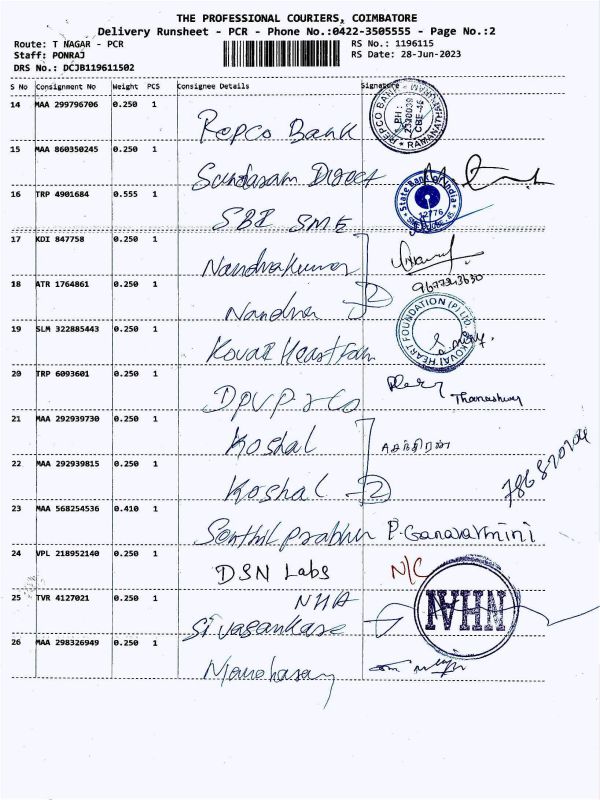 THE PROFESSIONAL COURIERS, COIMBATORE
Delivery Runsheet - PCR - Phone No.:0422-3505555 - Page No.:2
Route: T NAGAR - PCR
Staff: PONRAJ
DRS No.: DCJB119611502
RS No.: 1196115
RS Date: 28-Jun-2023
S No Consignment No Weight PCS Consignee Details Signature
14 MAA 299796706 0.250 1
Repco Bank
REPCO BANK
RAMANATHAPURAM
PH:
CBE-45
15 MAA 860350245 0.250 1
Sundaram Direct
16 TRP 4901684 0.555 1
SBI SME
State Bank of India
12776
17 KDI 847758 0.250 1
Nandhakumar
18 ATR 1764861 0.250 1
Nandha
2
19 SLM 322885443 0.250 1
Kovai Heart Foun
KOVAI HEART FOUNDATION (P) LTD.
20 TRP 6093601 0.250 1
DPV P & Co
21 MAA 292939730 0.250 1
Koshal
22 MAA 292939815 0.250 1
Koshal
2
23 MAA 568254536 0.410 1
Senthil Prabhu
24 VPL 218952140 0.250 1
DSN Labs N/C
25 TVR 4127021 0.250 1
NHA
Sivasankare
NHAI
26 MAA 298326949 0.250 1
Manoharan